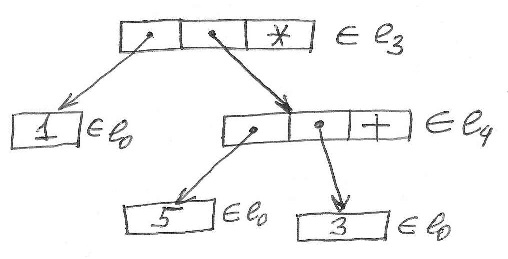 * ∈ l₃
1 ∈ l₀
+ ∈ l₄
5 ∈ l₀
3 ∈ l₀